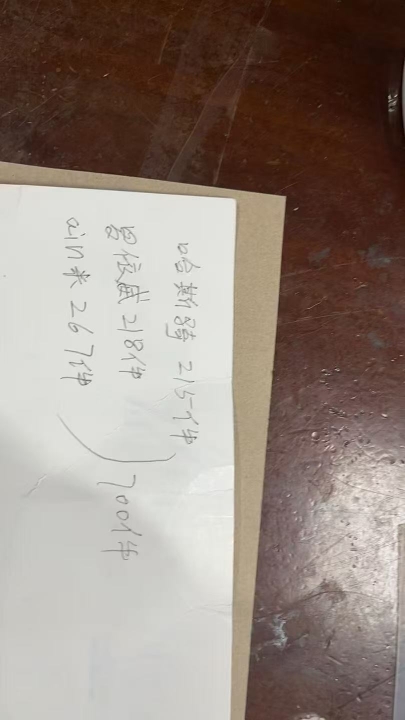 哈斯弹 215件
窑位威 218件
ain米 267件
700件